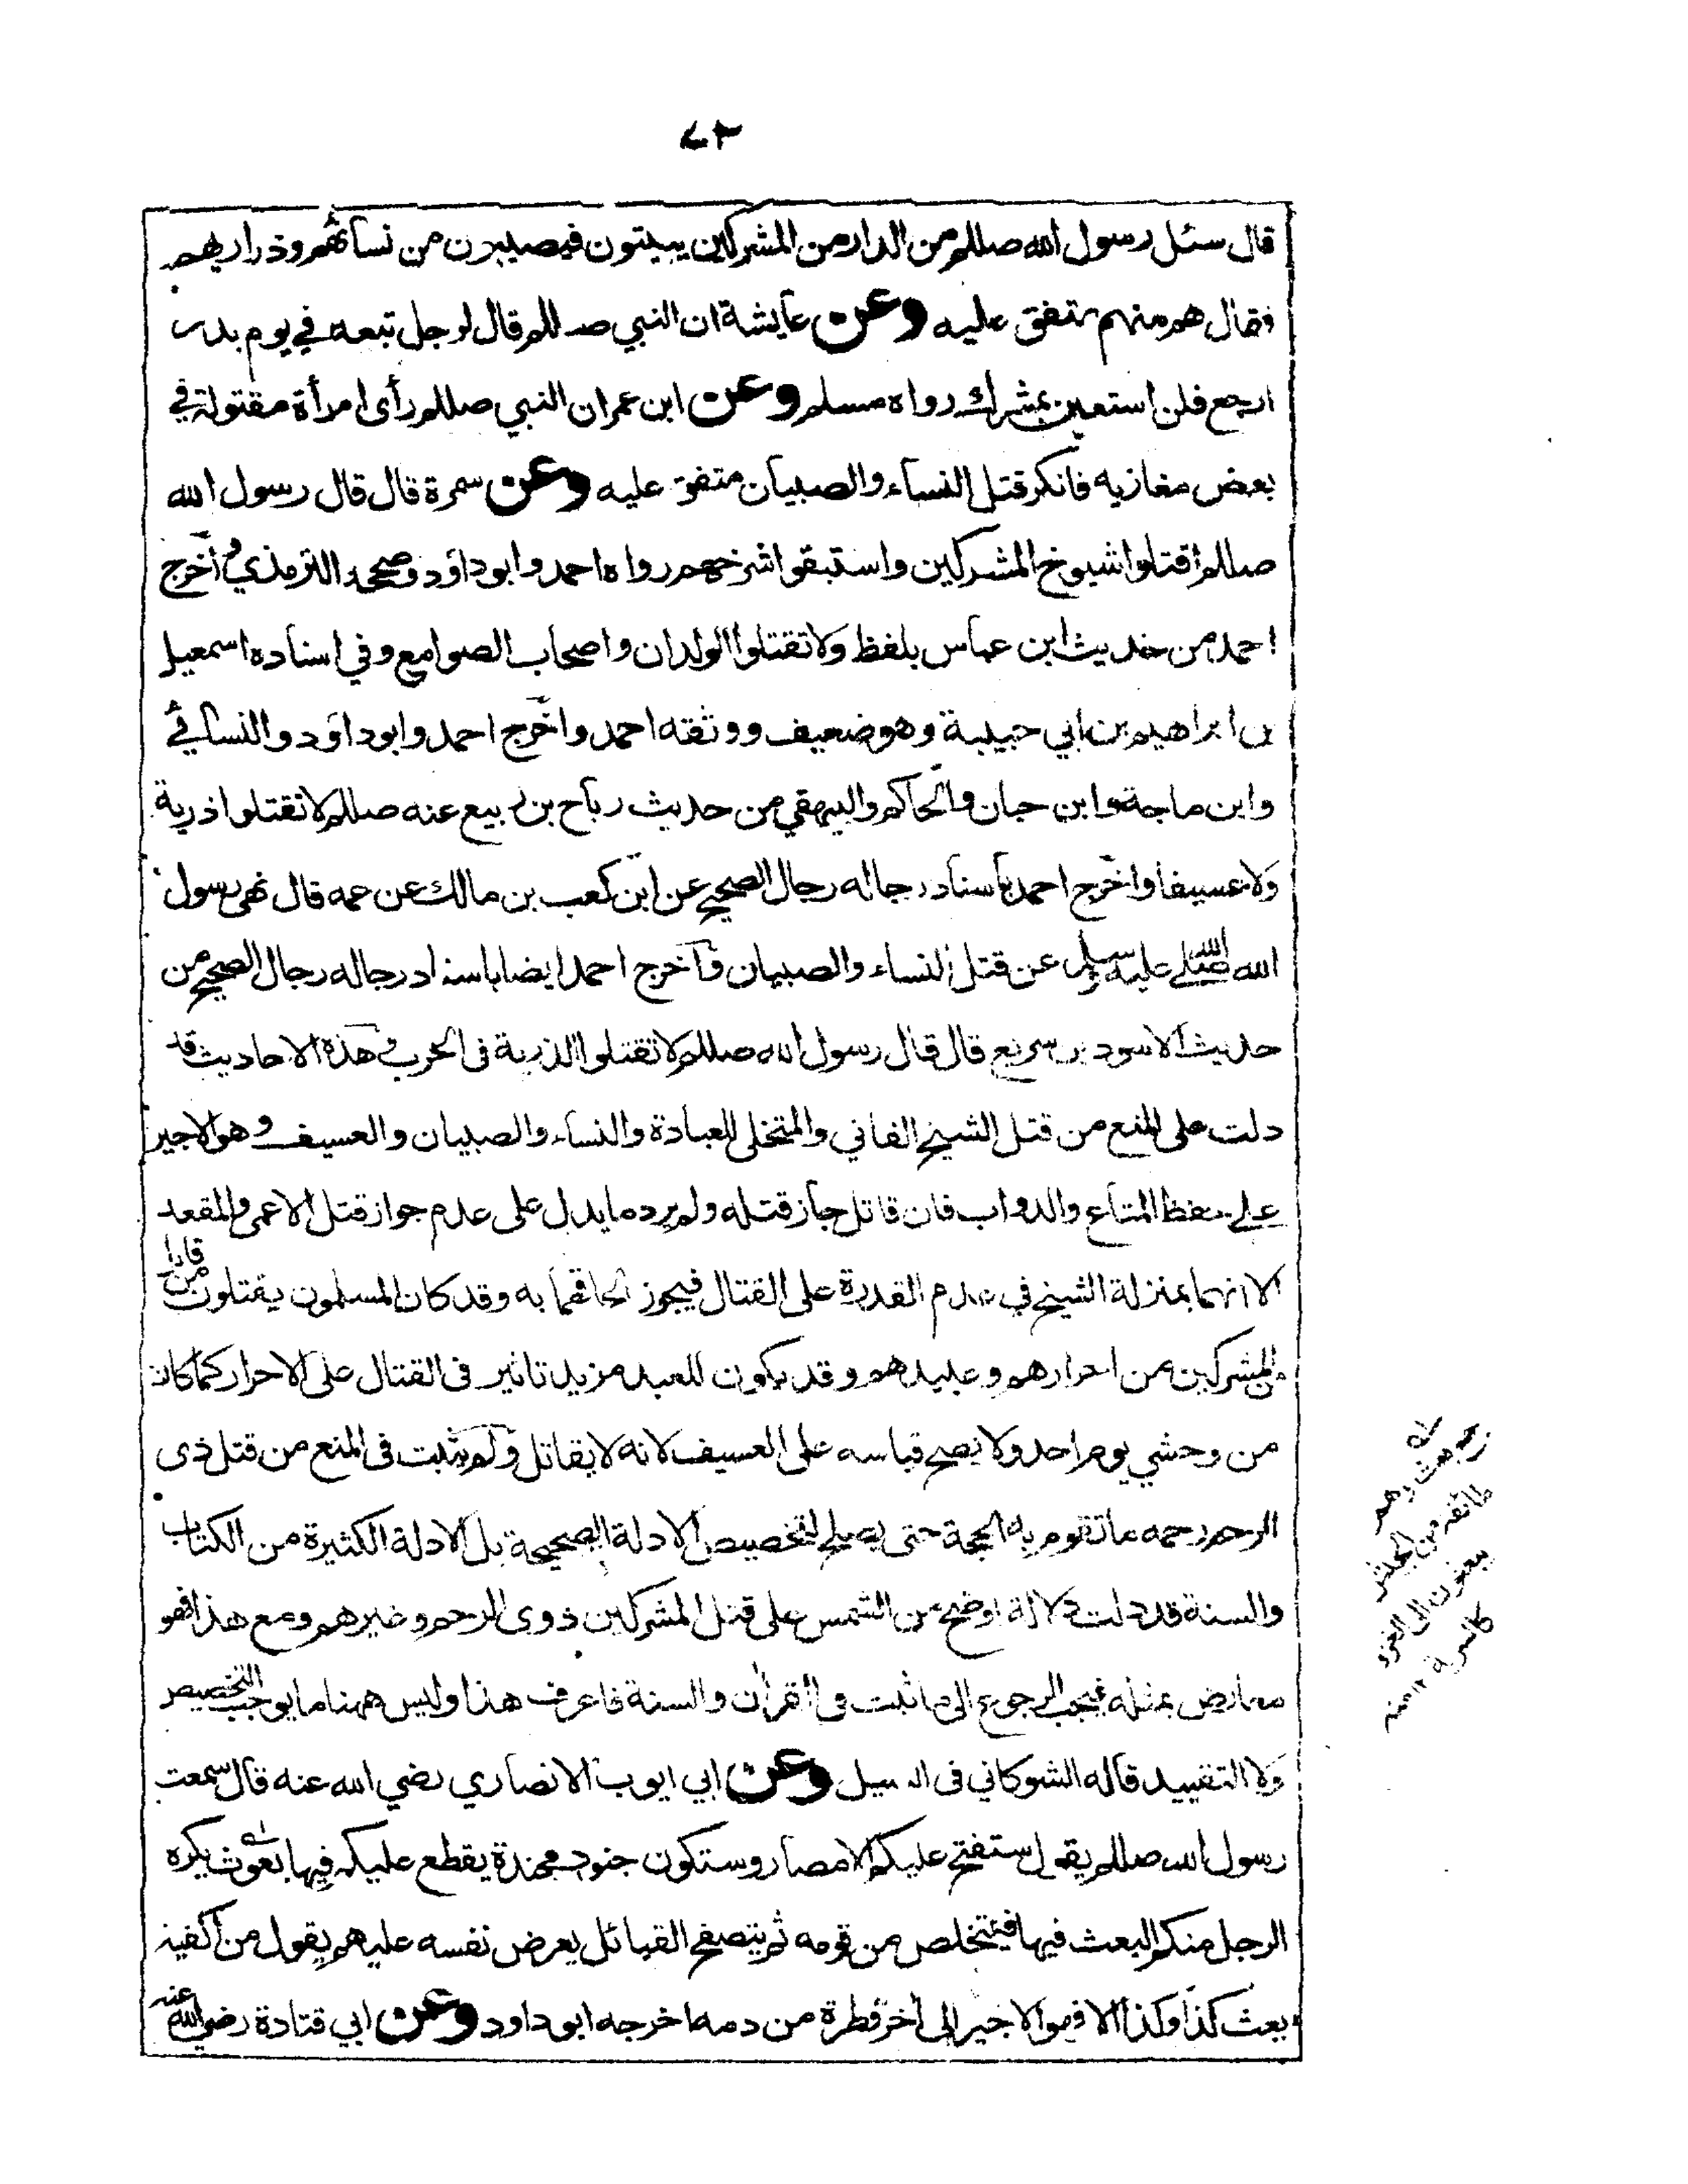 ٧٣
قال سئل رسول الله صللم من الدار من المشركين يبيتون فيصيبون من نسائهم وذراريهم
فقال هم منهم متفق عليه وعن عايشة ان النبي صللم قال لرجل تبعه في يوم بدر
ارجع فلن استعين بمشرك رواه مسلم وعن ابن عمران النبي صللم رأى امرأة مقتولة في
بعض مغازيه فانكر قتل النساء والصبيان متفق عليه وعن سمرة قال قال رسول الله
صللم اقتلوا شيوخ المشركين واستبقوا شرخهم رواه احمد وابوداود وصححه الترمذي وأخرج
احمد من حديث ابن عباس بلفظ ولا تقتلوا الولدان واصحاب الصوامع وفي اسناده اسمعيل
بن ابراهيم بن ابي حبيبة وهو ضعيف ووثقه احمد واخرج احمد وابوداود والنسائي
وابن ماجة وابن حبان والحاكم والبيهقي من حديث رباح بن ربيع عنه صللم لا تقتلوا ذرية
ولا عسيفا واخرج احمد باسناد رجاله رجال الصحيح عن ابن كعب بن مالك عن عمه قال نهى رسول
الله صلى الله عليه وسلم عن قتل النساء والصبيان وآخرج احمد ايضا باسناد رجاله رجال الصحيح من
حديث الاسود بن سريع قال قال رسول الله صللم لا تقتلوا الذرية فى الحرب وهذه الاحاديث قد
دلت على المنع من قتل الشيخ الفاني والمتخلى للعبادة والنساء والصبيان والعسيف وهو الاجير
على حفظ المتاع والدواب فان قاتل جاز قتله ولم يرد ما يدل على عدم جواز قتل الاعمى والمقعد
الا انهما بمنزلة الشيخ في عدم القدرة على القتال فيجوز الحاقهما به وقد كان المسلمون يقتلون من قاتل
من المشركين من احرارهم وعبيدهم وقد يكون للعبد مزيد تاثير فى القتال على الاحرار كما كان
من وحشي يوم احد ولا يصح قياسه على العسيف لانه لا يقاتل ولم يثبت فى المنع من قتل ذى
الرحم رحمه ما تقوم به الحجة حتى يصلح لتخصيص الادلة الصحيحة بل الادلة الكثيرة من الكتاب
والسنة قد دلت دلالة اوضح من الشمس على قتل المشركين ذوى الرحم وغيرهم ومع هذا فهو
معارض بمثله فيجب الرجوع الى ما ثبت فى القرأن والسنة فاعرف هذا وليس ههنا ما يوجب التخصيص
ولا التقييد قاله الشوكاني فى السيل وعن ابي ايوب الانصاري رضي الله عنه قال سمعت
رسول الله صللم يقول ستفتح عليكم الامصار وستكون جنود مجندة يقطع عليكم فيها بعوث يكره
الرجل منكم البعث فيها فيتخلص من قومه ثم يتصفح القبائل يعرض نفسه عليهم يقول من أكفيه
بعث كذا وكذا ألا وهو الاجير الى أخر قطرة من دمه اخرجه ابوداود وعن ابي قتادة رضي الله عنه
جمع بعث وهم
طائفة من الجيش
يبعثون الى الغزو
كالسرية ١٢ منه